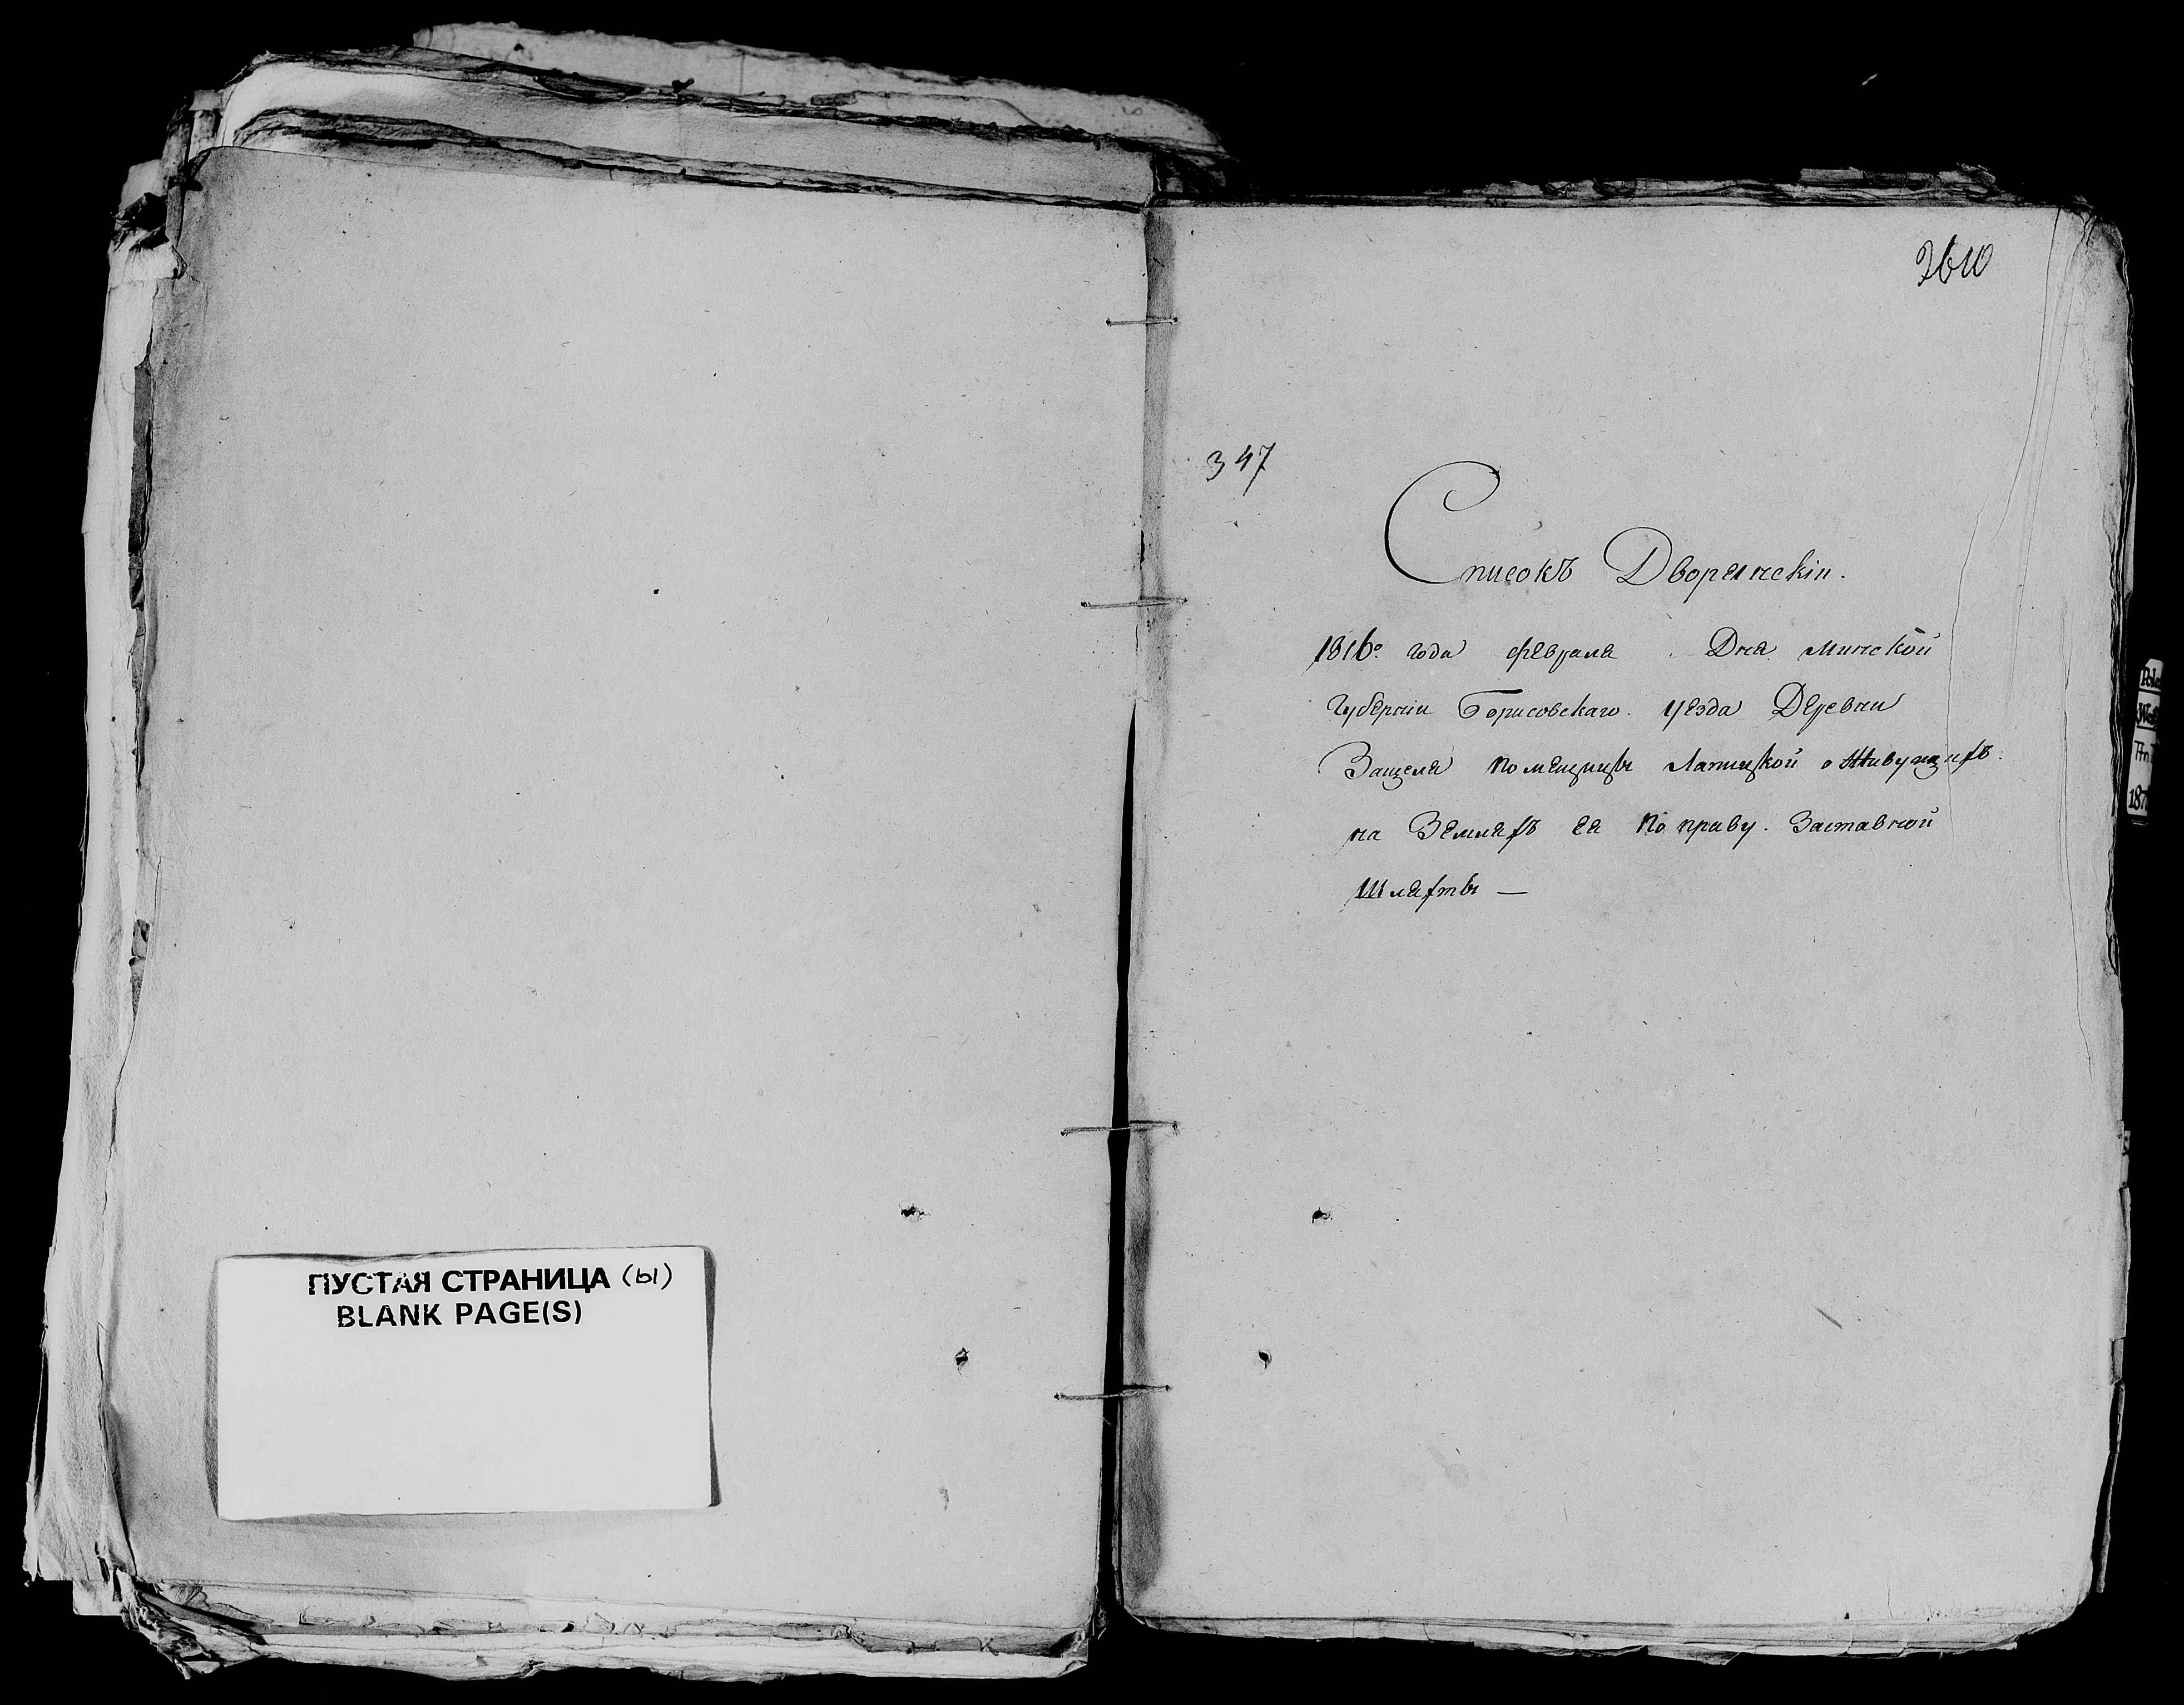 ПУСТАЯ СТРАНИЦА (ы)
BLANK PAGE(S)
347
Списокъ Дворянскіи.
1816º года февраля Дня Минской
Губерніи Борисовскаго уезда Деревни
Защеля помещицы Лапицкой о Живущихъ
на Земляхъ ея по праву Заставной
Шляхты —